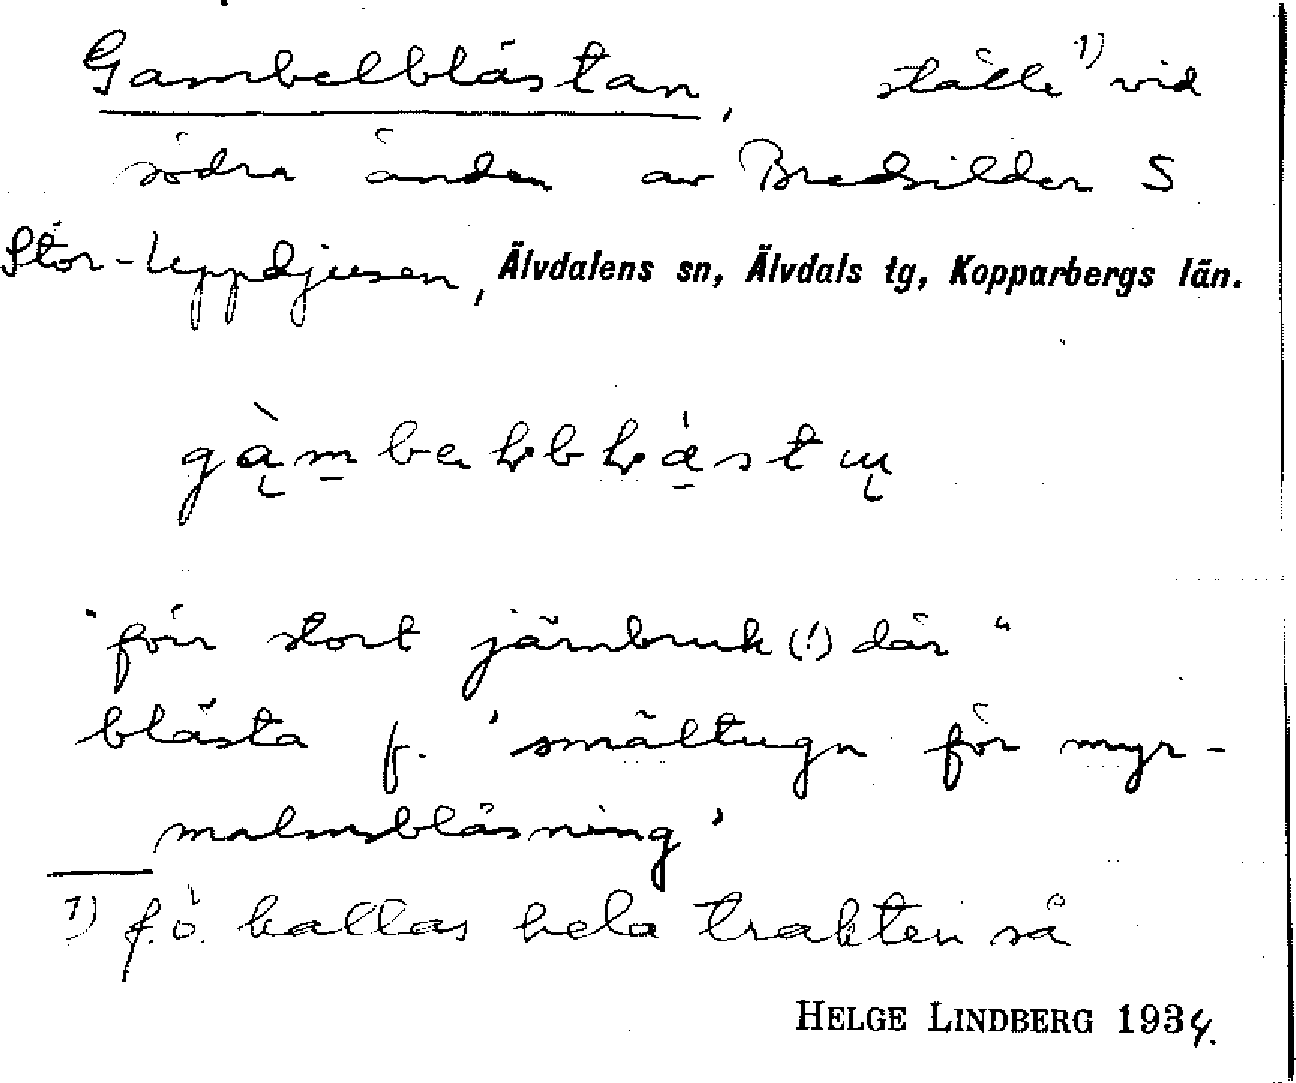 Gambelblästan, ställe ¹⁾ vid
södra änden av Bredsilder S
Stor-Uppdjusen, Älvdalens sn, Älvdals tg, Kopparbergs län.
"förr stort järnbruk (!) där"
blästa f. 'smältugn för myr-
malmsblåsning'
¹⁾ f.ö. kallas hela trakten så
HELGE LINDBERG 1934.